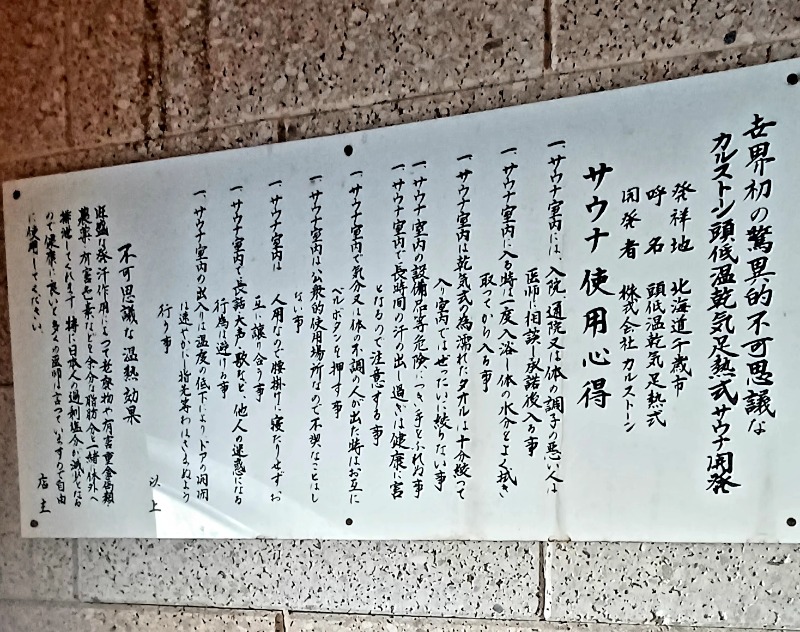 世界初の驚異的不可思議な
カルストーン頭低温乾気足熱式サウナ開発
発祥地 北海道千歳市
呼名 頭低温乾気足熱式
開発者 株式会社カルストーン
サウナ使用心得
一、サウナ室内には、入院、通院又は体の調子の悪い人は
医師に相談し承諾後入る事
一、サウナ室内に入る時は一度入浴し体の水分をよく拭き
取ってから入る事
一、サウナ室内は乾気式の為濡れたタオルは十分絞って
入り室内ではぜったいに絞らない事
一、サウナ室内の設備品等危険につき手をふれぬ事
一、サウナ室内で長時間の汗の出し過ぎは健康に害
となるので注意する事
一、サウナ室内で気分又は体の不調の人が出た時はお互に
ベルボタンを押す事
一、サウナ室内は公衆的使用場所なので不潔なことはし
ない事
一、サウナ室内は 人用なので腰掛けに寝たりせず、お
互に譲り合う事
一、サウナ室内で長話、大声、歌など、他人の迷惑になる
行為は避ける事
一、サウナ室内の出入は温度の低下によりドアの開閉
は速やかにし指先等わはさまぬよう
行う事
以上
不可思議な温熱効果
旺盛な発汗作用によって老廃物や有害重金属類
農薬、有害色素などを余分な脂肪分と一緒に体外へ
排泄してくれます 特に日本人の過剰塩分が減少となる
ので健康に良いと多くの医師は言っていますので自由
に使用してください。
店主